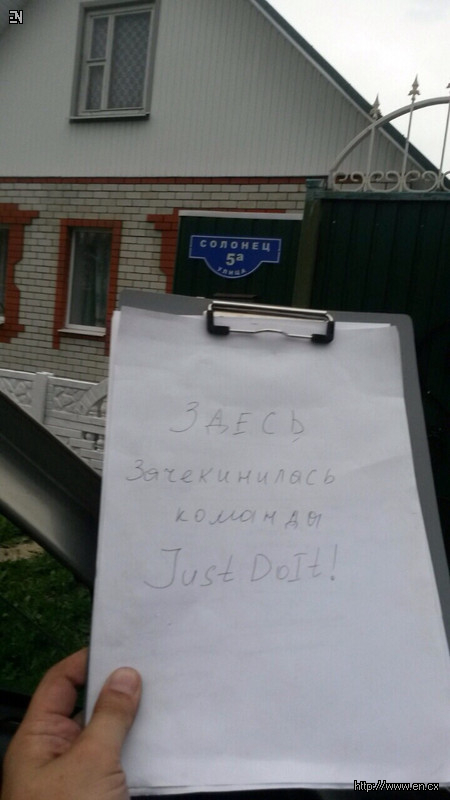 EN
СОЛОНЕЦ
5а
УЛИЦА
ЗДЕСЬ
Зачекинилась
команды
Just DoIt!
http://www.en.cx